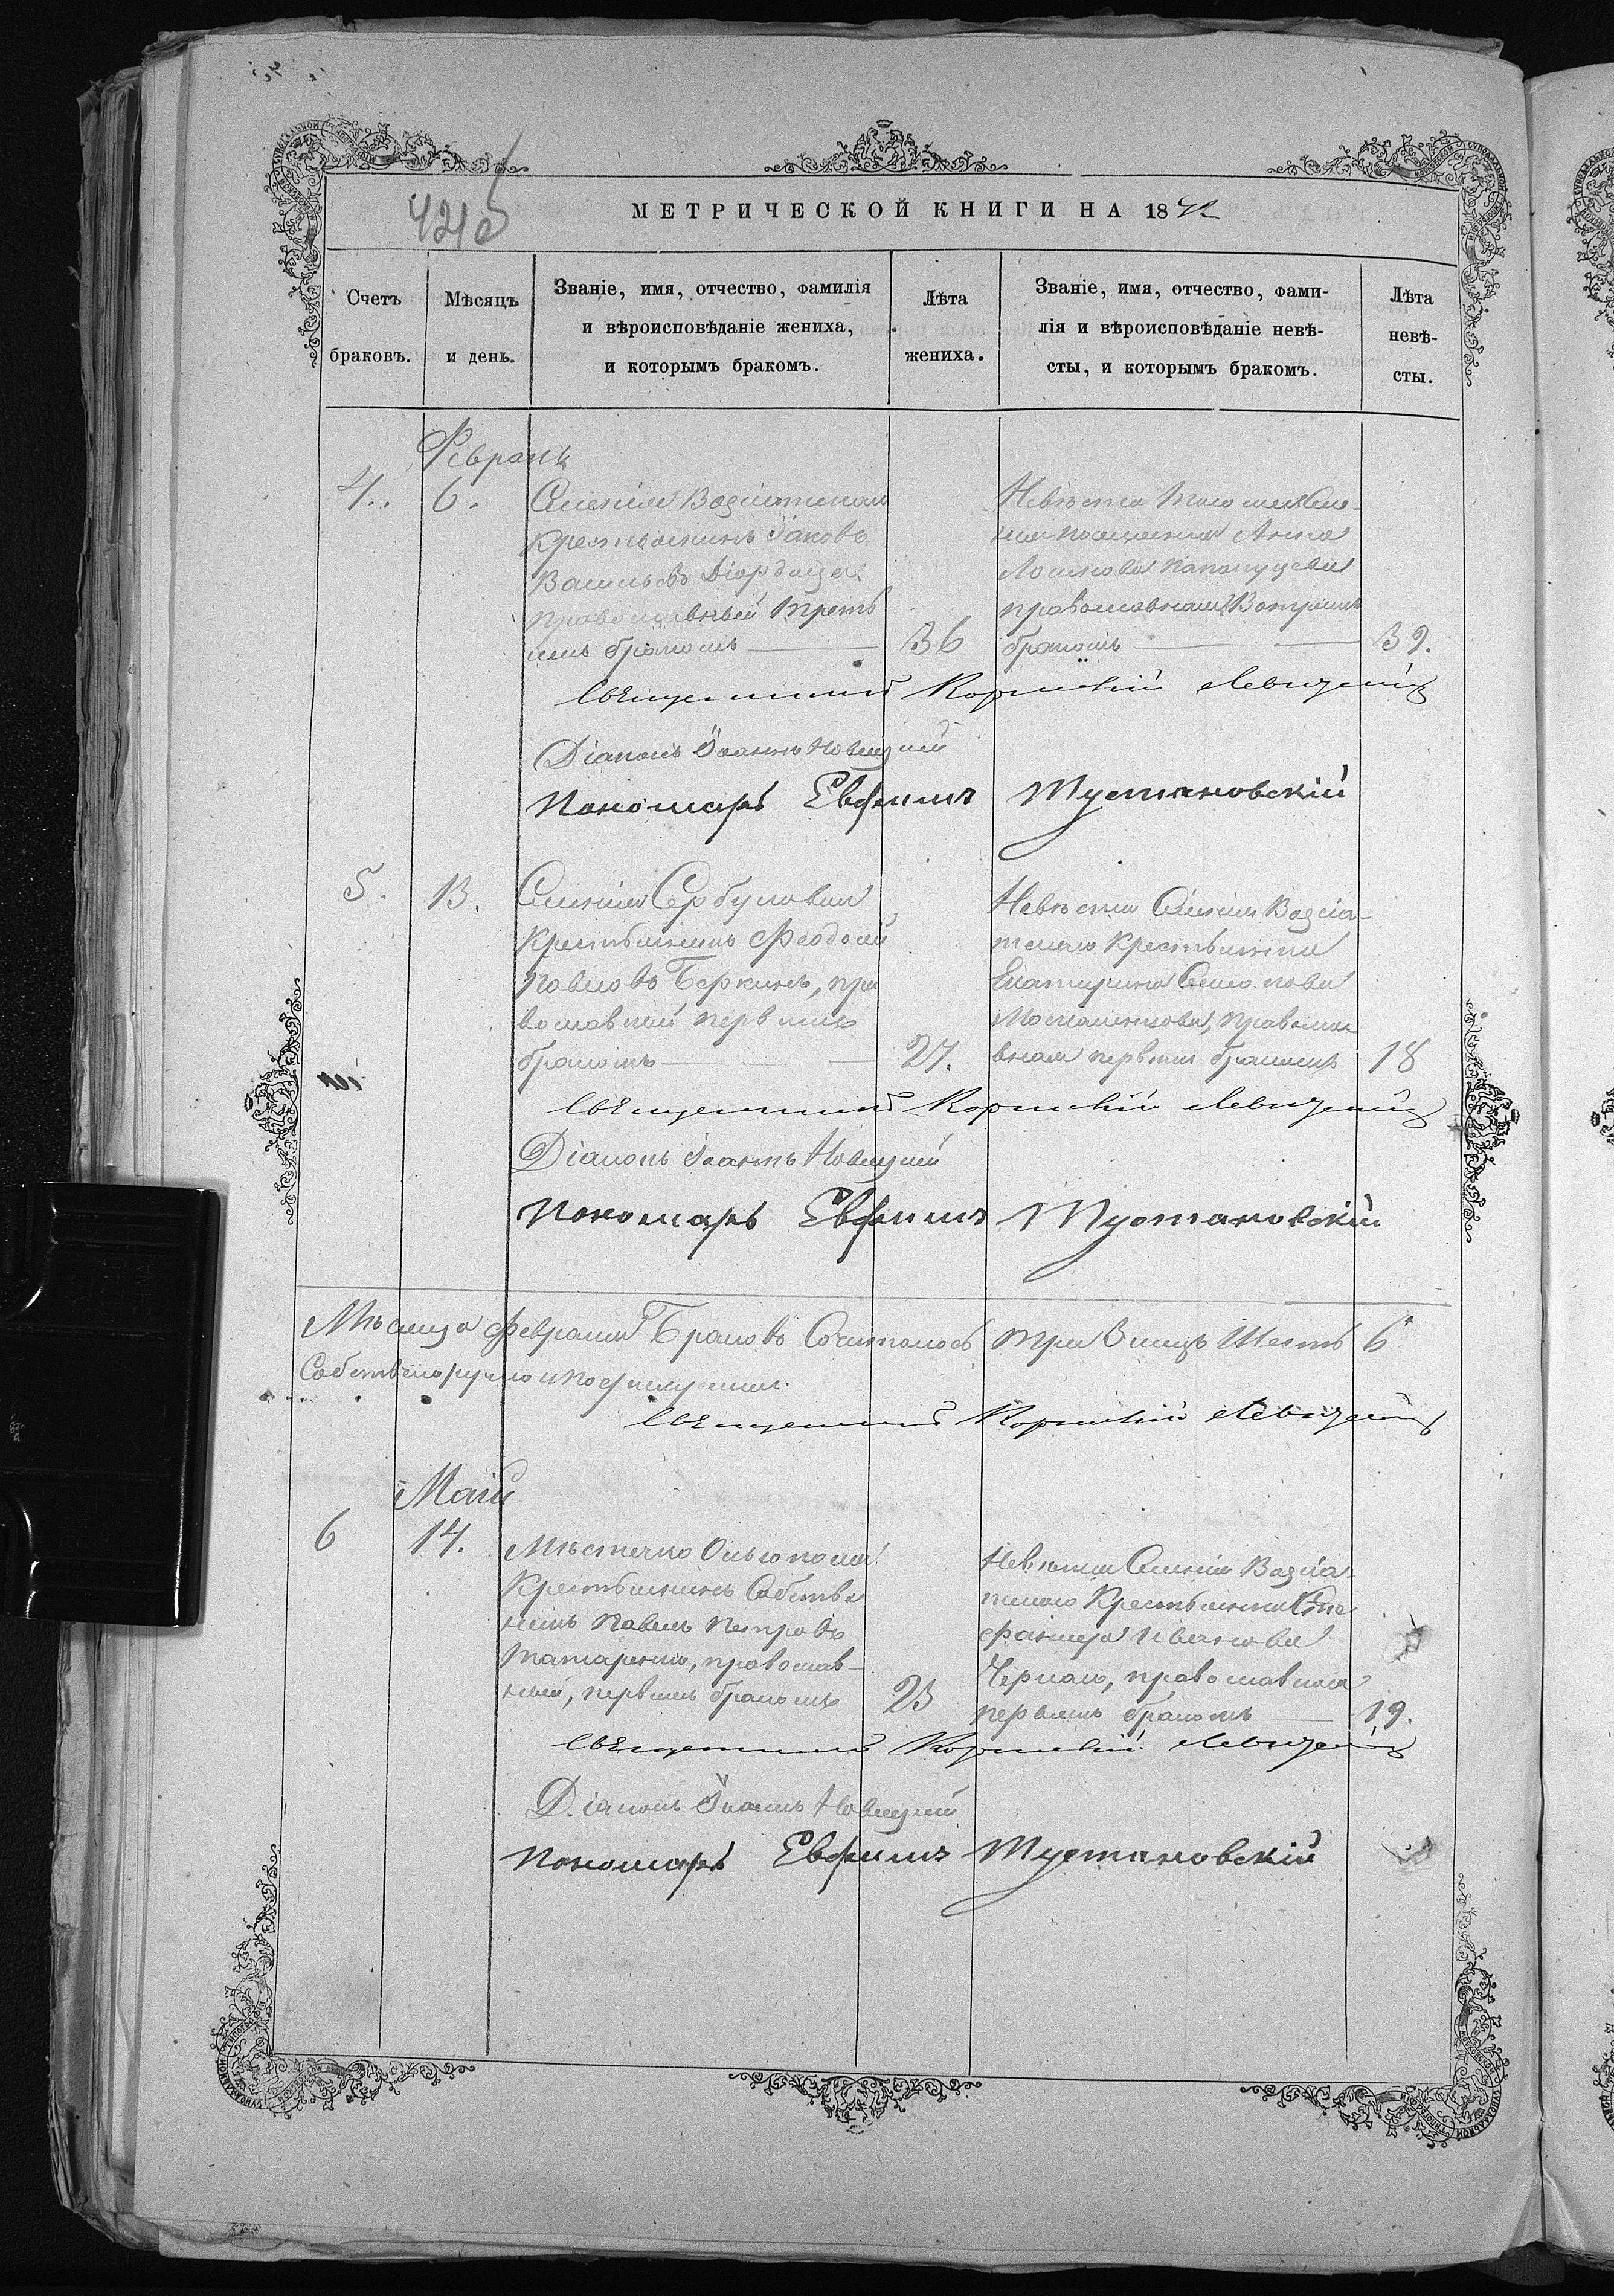 МЕТРИЧЕСКОЙ КНИГИ НА 1872
Счетъ браковъ.
Мѣсяцъ и день.
Званіе, имя, отчество, фамилія
и вѣроисповѣданіе жениха,
и которымъ бракомъ.
Лѣта жениха.
Званіе, имя, отчество, фами-
лія и вѣроисповѣданіе невѣ-
сты, и которымъ бракомъ.
Лѣта невѣ-
сты.
Февраль
4. 6.
Селенія
Крестьянинъ Іаковъ
Васильевъ Діордица
православный треть
имъ бракомъ 36
Невѣста того же Селе
нія поселянка Анна
православная Вторымъ
бракомъ 39.
Священникъ Корнилій Левицкій
Діаконъ Іоаннъ Новицкій
Пономарь Евфимъ Тустановскій
5. 13.
Селенія Сербуловки
Крестьянинъ Феодосій
Павловъ Беркинъ, пра
вославный первымъ
бракомъ 27.
Невѣста Селенія
Крестьянка
Екатерина
православ
вная первымъ бракомъ 18
Священникъ Корнилій Левицкій
Діаконъ Іоаннъ Новицкій
Пономарь Евфимъ Тустановскій
Мѣсяца Февраля Браковъ Сочиталось три лицъ Шесть 6
Священникъ Корнилій Левицкій
Май
6 14.
Мѣстечко Ольгополя
Крестьянинъ Собстве
никъ Павелъ Петровъ
Татаренко, православ-
ный, первымъ бракомъ 23
Невѣста Селенія
Крестьянка Сте
фанида Иванова
Черная, православная
первымъ бракомъ 19.
Священникъ Корнилій Левицкій
Діаконъ Іоаннъ Новицкій
Пономарь Евфимъ Тустановскій